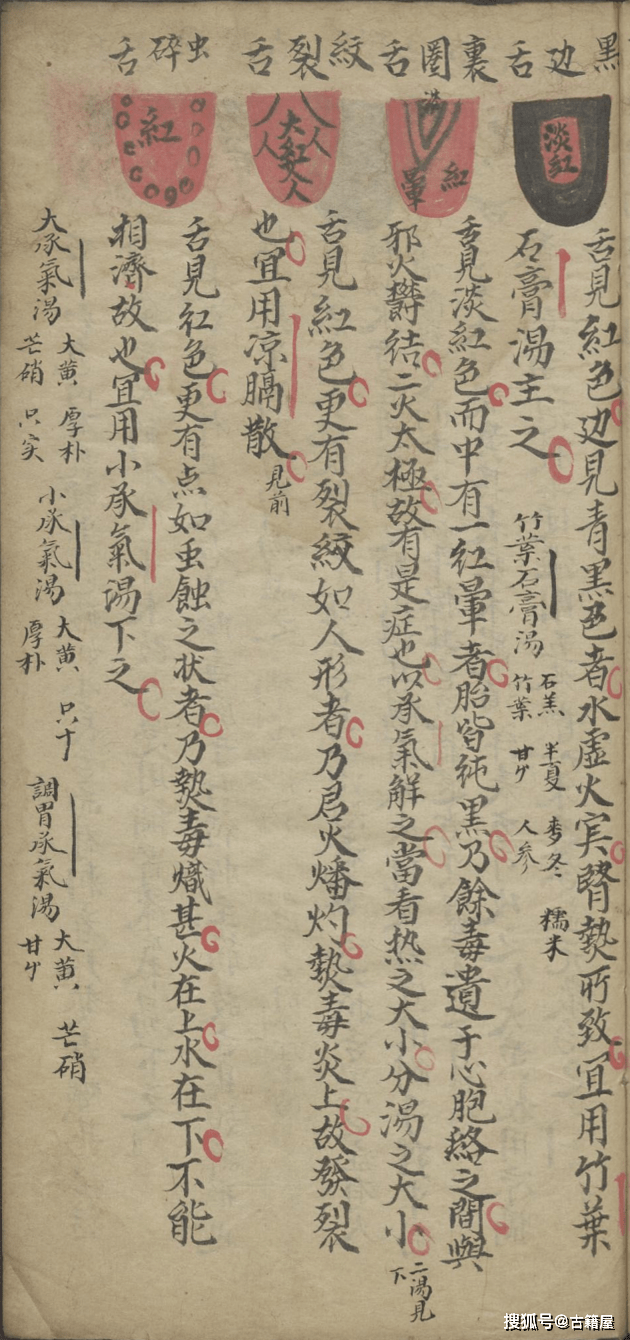 黑边舌
裏圈舌
紋裂舌
虫碎舌
淡紅
淡
紅
暈
人
人
大紅
人
人
紅
舌見紅色边見青黑色者水虛火实腎熱所致宜用竹葉
石膏湯主之
竹葉石膏湯
石羔 半夏 麥冬 糯米
竹葉 甘 人参
舌見淡紅色而中有一紅暈者胎皆純黑乃餘毒遺于心胞絡之間與
邪火欝结二火太極故有是症也以承氣解之當看热之大小分湯之大小
二湯見
下
舌見紅色更有裂紋如人形者乃君火燔灼熱毒炎上故發裂
也宜用凉膈散
見前
舌見紅色更有点如虫蝕之状者乃熱毒熾甚火在上水在下不能
相濟故也宜用小承氣湯下之
大承氣湯
大黄 厚朴
芒硝 只实
小承氣湯
大黄 只十
厚朴
調胃承氣湯
大黄 芒硝
甘
搜狐号@古籍屋